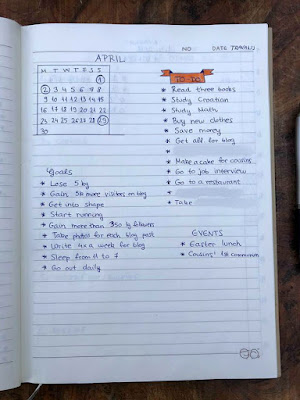 NO. DATE
APRIL
M T W T F S S
1
2 3 4 5 6 7 8
9 10 11 12 13 14 15
16 17 18 19 20 21 22
23 24 25 26 27 28 29
30
TO DO
* Read three books
* Study Croation
* Study Math
* Buy new clothes
* Save money
* Get all for blog
*
* Make a cake for cousins
* Go to job interview
* Go to a restaurant
*
* Take
Goals
* Lose 5 kg
* Gain 5k more visitors on blog
* Get into shape
* Start running
* Gain more than 350 ig followers
* Take photos for each blog post
* Write 4x a week for blog
* Sleep from 11 to 7
* Go out daily
EVENTS
* Easter lunch
* Cousins' 1st communion